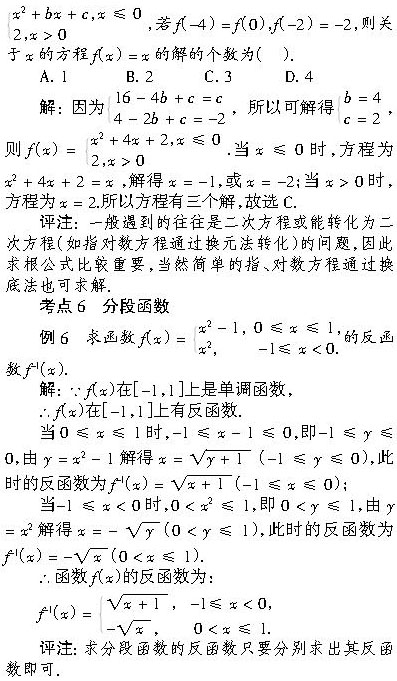 {x² + bx + c, x ≤ 0
2, x > 0 , 若 f(-4) = f(0), f(-2) = -2, 则关
于 x 的方程 f(x) = x 的解的个数为( ).
A. 1 B. 2 C. 3 D. 4
解: 因为 {16 - 4b + c = c
4 - 2b + c = -2 , 所以可解得 {b = 4
c = 2 ,
则 f(x) = {x² + 4x + 2, x ≤ 0
2, x > 0 . 当 x ≤ 0 时, 方程为
x² + 4x + 2 = x , 解得 x = -1, 或 x = -2; 当 x > 0 时,
方程为 x = 2. 所以方程有三个解, 故选 C.
评注: 一般遇到的往往是二次方程或能转化为二
次方程(如指对数方程通过换元法转化)的问题, 因此
求根公式比较重要, 当然简单的指、对数方程通过换
底法也可求解.
考点 6 分段函数
例 6 求函数 f(x) = {x² - 1, 0 ≤ x ≤ 1,
x², -1 ≤ x < 0. 的反函
数 f⁻¹(x).
解: ∵ f(x)在[-1,1]上是单调函数,
∴ f(x)在[-1,1]上有反函数.
当 0 ≤ x ≤ 1 时, -1 ≤ x - 1 ≤ 0, 即 -1 ≤ y ≤
0, 由 y = x² - 1 解得 x = √(y + 1) (-1 ≤ y ≤ 0), 此
时的反函数为 f⁻¹(x) = √(x + 1) (-1 ≤ x ≤ 0);
当 -1 ≤ x < 0 时, 0 < x² ≤ 1, 即 0 < y ≤ 1, 由 y
= x² 解得 x = - √y (0 < y ≤ 1), 此时的反函数为
f⁻¹(x) = -√x (0 < x ≤ 1).
∴ 函数 f(x)的反函数为:
f⁻¹(x) = {√(x + 1) , -1 ≤ x < 0,
-√x , 0 < x ≤ 1.
评注: 求分段函数的反函数只要分别求出其反函
数即可.